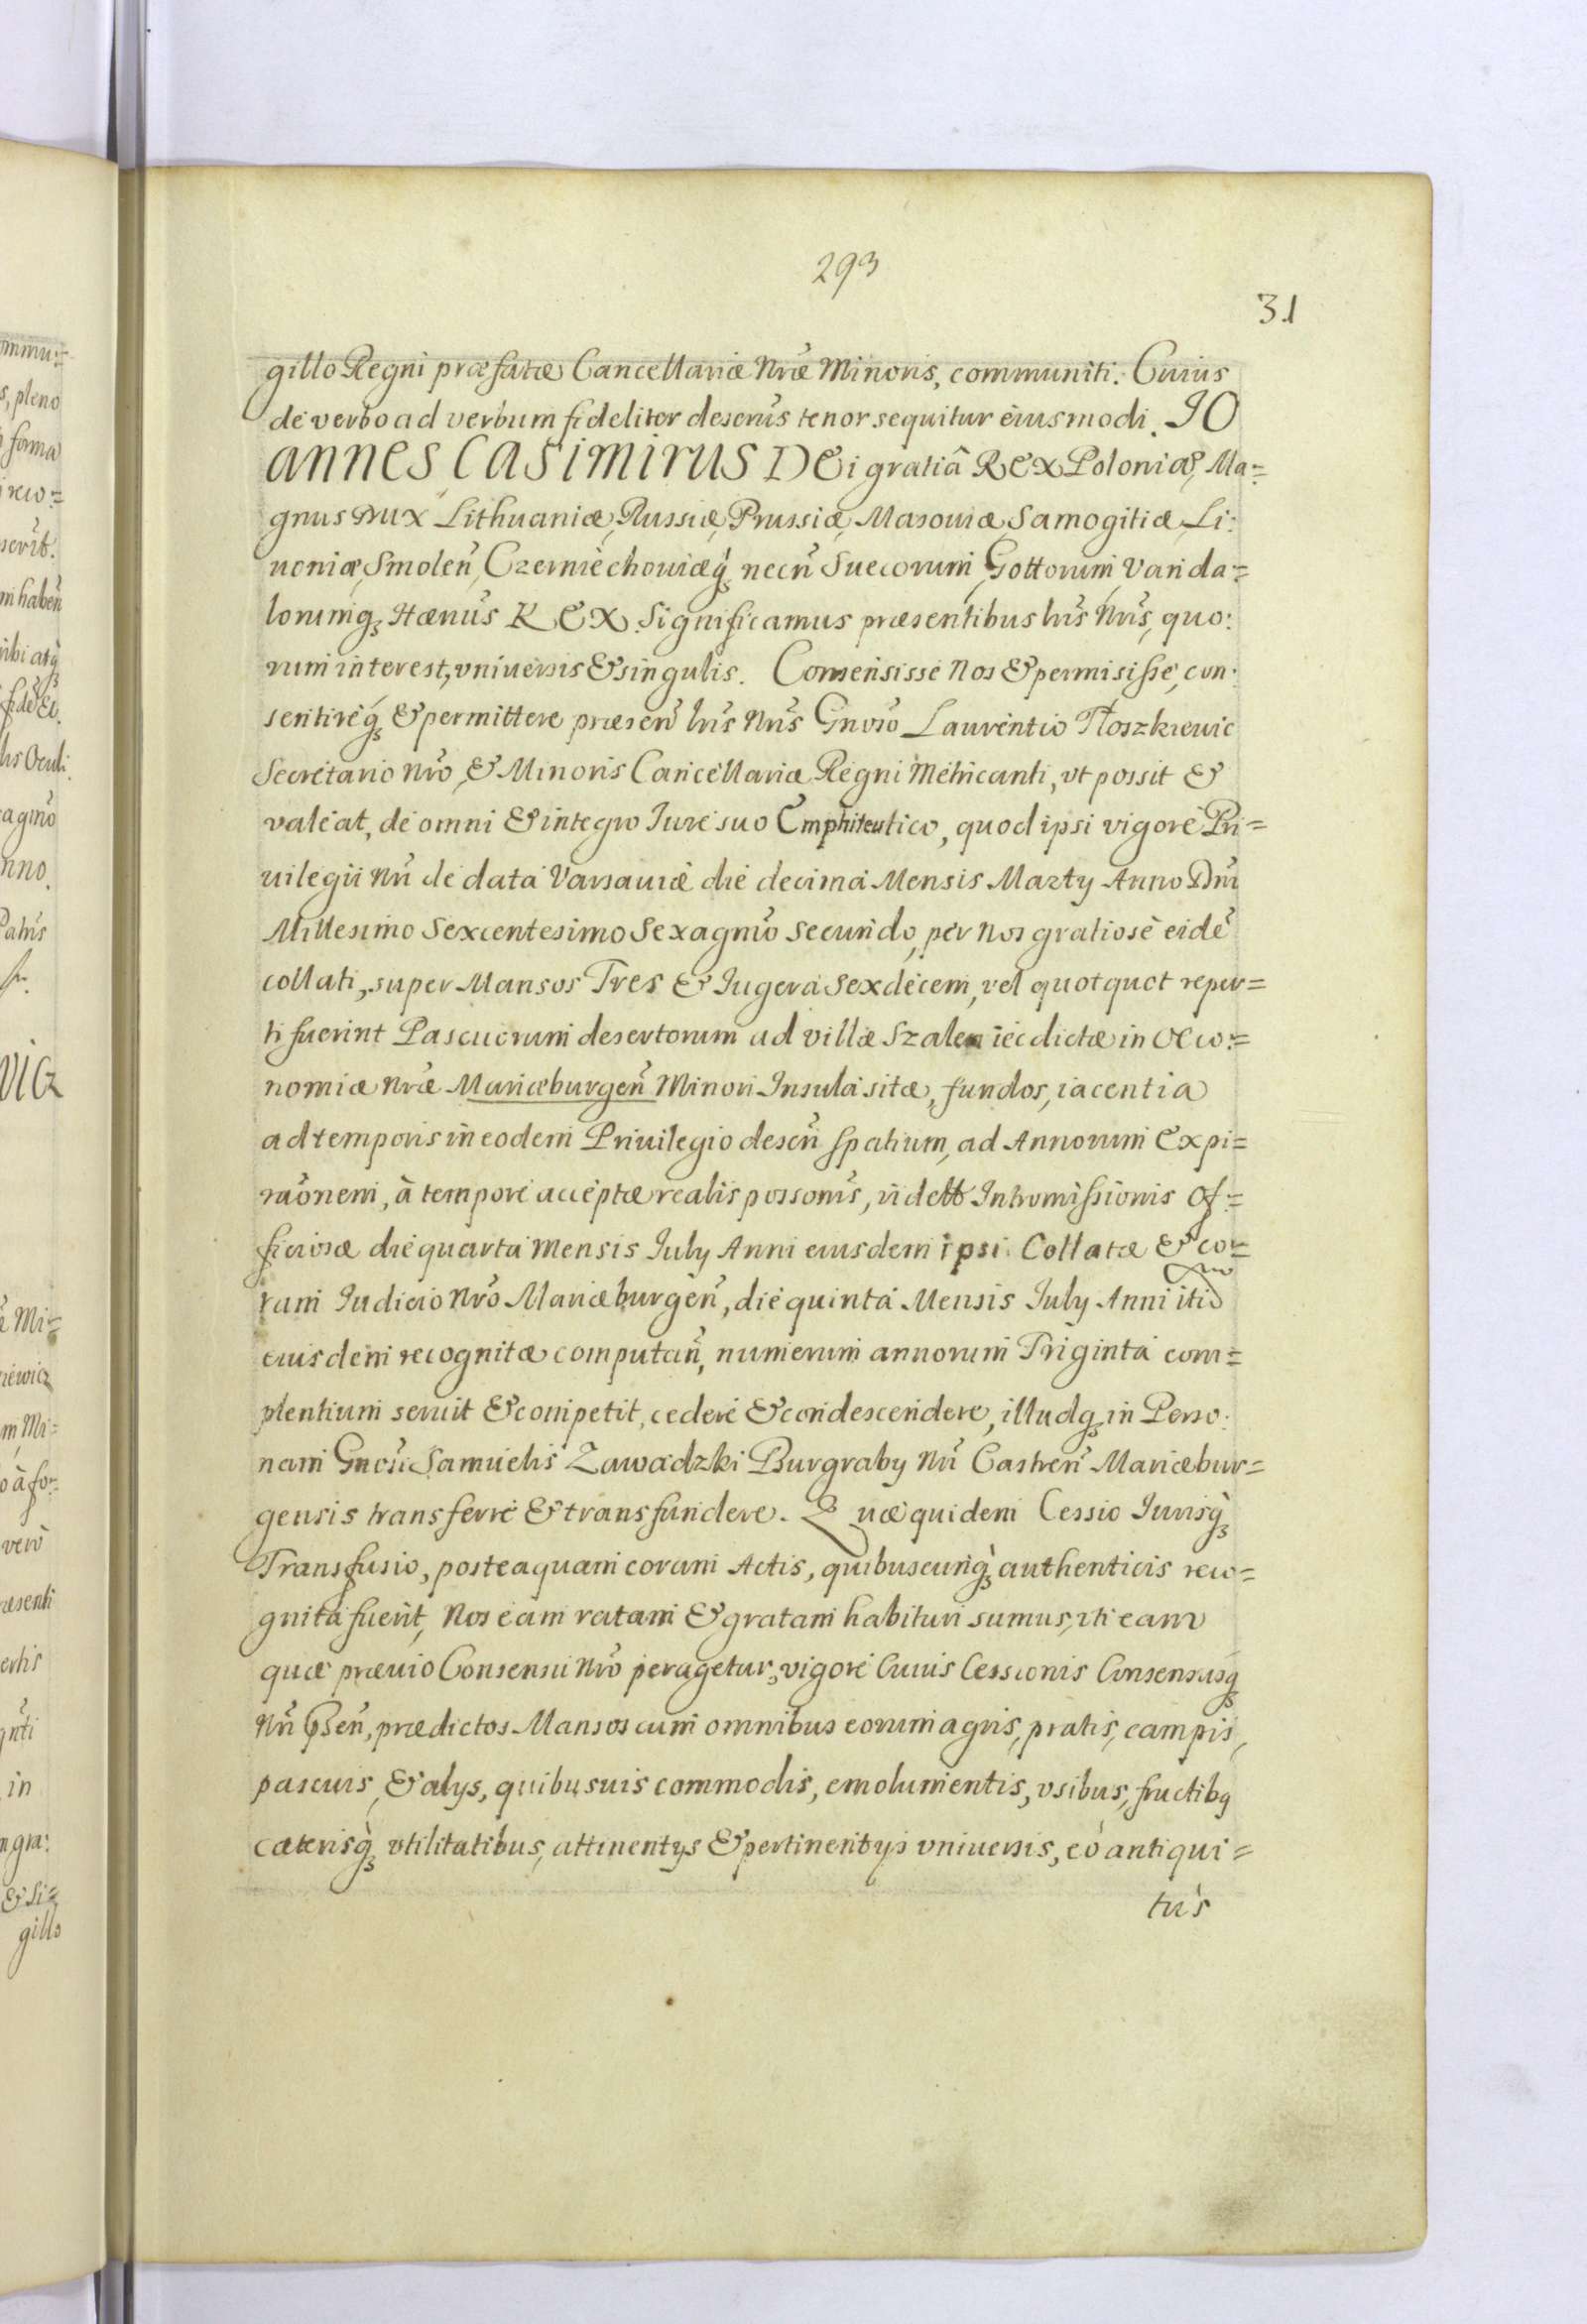 293
31
gillo Regni præfatæ Cancellariæ Nræ Minoris, communiti. Cuius
de verbo ad verbum fideliter descrus tenor sequitur eiusmodi. JO
ANNES CASIMIRUS DEi gratiâ REX Poloniæ, Ma=
gnus DUX Lithuaniæ, Russiæ, Prussiæ, Masouiæ, Samogitiæ, Li:
uoniæ, Smolen̄, Czerniechouiæq̢ necn̄ Suecorum, Gottorum Vanda=
lorumq̢ Hæn̄us REX. Significamus præsentibus lr̄is Nr̄is, quo:
rum interest, vniuersis & singulis. Consensisse Nos & permisisse, con:
sentireq̢ & permittere præsen̄ lr̄is Nr̄is Gnoso Laurentio Płoszkiewic
Secretario Nr̄o, & Minoris Cancellariæ Regni Metricanti, vt possit &
valeat, de omni & integro Jure suo Emphiteutico, quod ipsi vigore Pri=
uilegii Nr̄i de data Varsauiæ die decima Mensis Marty Anno Dni
Millesimo Sexcentesimo Sexagmō Secundo, per Nos gratiose eidē
collati, super Mansos Tres & Jugera Sexdecem, vel quotquot reper=
ti fuerint Pascuorum desertorum ad villæ Szaleniec dictæ in Oeco:=
nomiæ Nræ Mariæburgen̄ Minori Insula sitæ, fundos, iacentia
ad temporis in eodem Priuilegio descri̅ spatium, ad Annorum Expi=
raōnem, à tempore acceptæ realis possonis, videtl̄ Intromissionis Of:=
ficiosæ die quarta Mensis July Anni eiusdem ipsi Collatæ & co=
ram Iudicio Nr̄o Mariæburgen̄, die quinta Mensis July Anni itid
eiusdem recognitæ computan̄, numerum annorum Triginta com=
plentium seruit & competit, cedere & condescendere, illudq̢ in Perso:
nam Gnosi Samuelis Zawadzki Burgraby Nr̄i Castren̄ Mariæbur=
gensis transferre & transfundere. Quæ quidem Cessio Jurisq̢
Transfusio, posteaquam coram Actis, quibuscunq̢ authenticis reco=
gnita fuerit, Nos eam ratam & gratam habituri sumus, vti eam
quæ præuio Consensu Nr̄o peragetur, vigore Cuius Cessionis Consensusq̢
Nr̄i p̄sen̄, prædictos Mansos cum omnibus eorum agris, pratis, campis,
pascuis, & alys, quibusuis commodis, emolumentis, vsibus, fructibq̢
cæterisq̢ vtilitatibus, attinentys & pertinentys vniuersis, eò antiqui=
tus